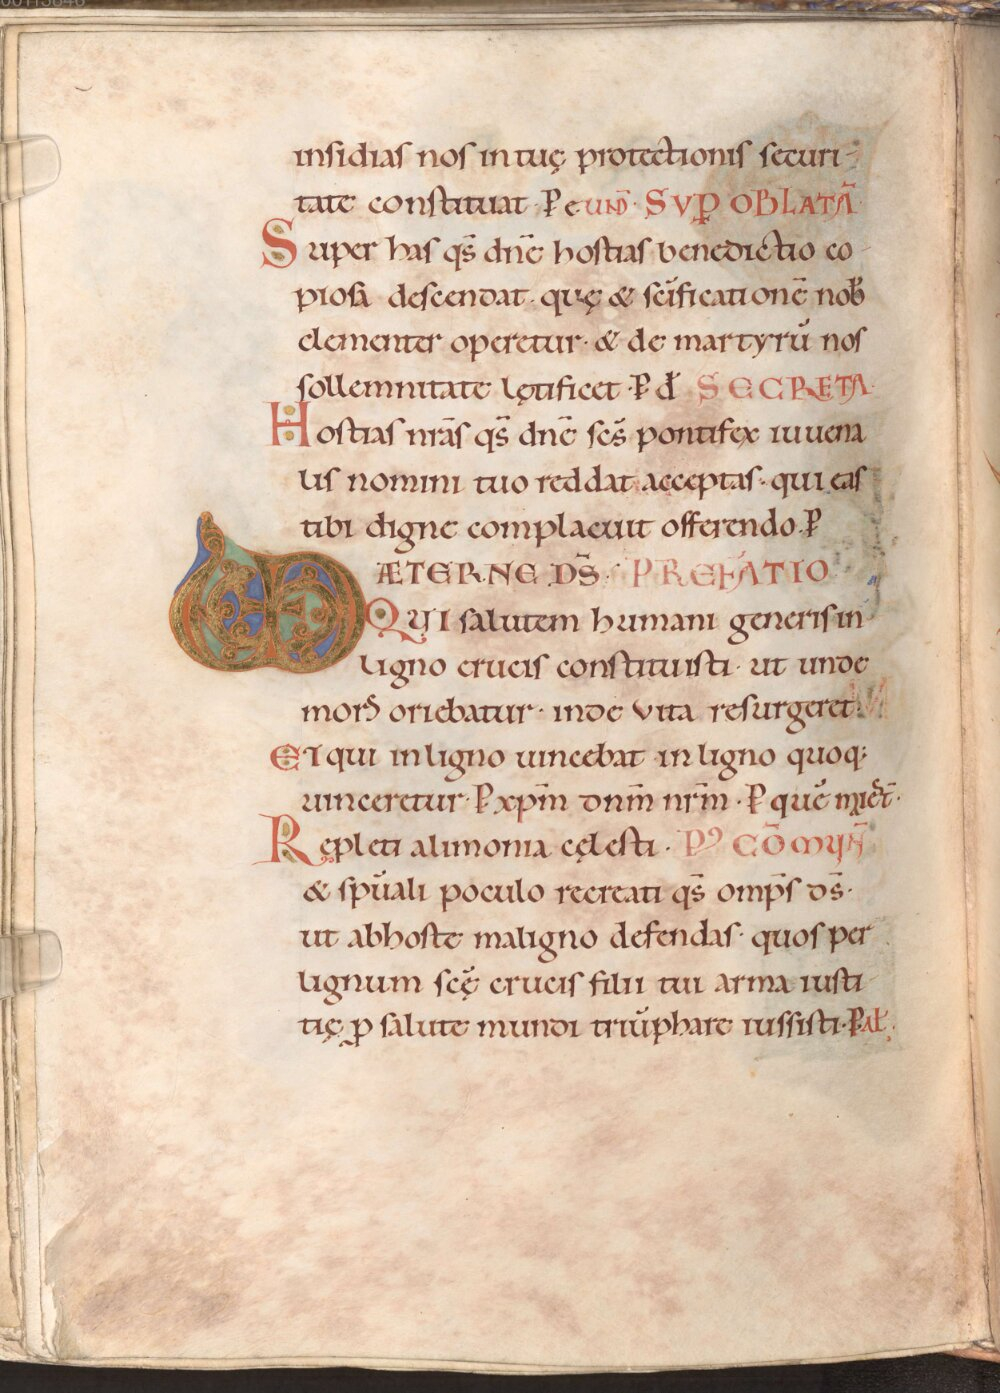 insidias nos in tuę protectionis securi-
tate constituat. P eund̄. SVP̱ OBLATĀ
Super has qs̄ dn̄e hostias benedictio co-
piosa descendat. quę & sc̄ificationē nob̄
clementer operetur. & de martyrū nos
sollemnitate lętificet. P d̄. SECRETA.
Hostias nr̄as qs̄ dn̄e sc̄s pontifex iuuena
lis nomini tuo reddat acceptas. qui eas
tibi digne complacuit offerendo. P
ÆTERNE D̄S. PREFATIO
QVI salutem humani generis in
ligno crucis constituisti. ut unde
mors oriebatur. inde vita resurgeret.
Et qui in ligno uincebat in ligno quoq;
uinceretur. P xp̄m dn̄m nr̄m. P quē
Repleti alimonia cęlesti. P' CŌMVN̄
& sp̄uali poculo recreati qs̄ omp̄s d̄s.
ut ab hoste maligno defendas. quos per
lignum sc̄ę crucis filii tui arma iusti-
tię p̱ salute mundi triūphare iussisti. P